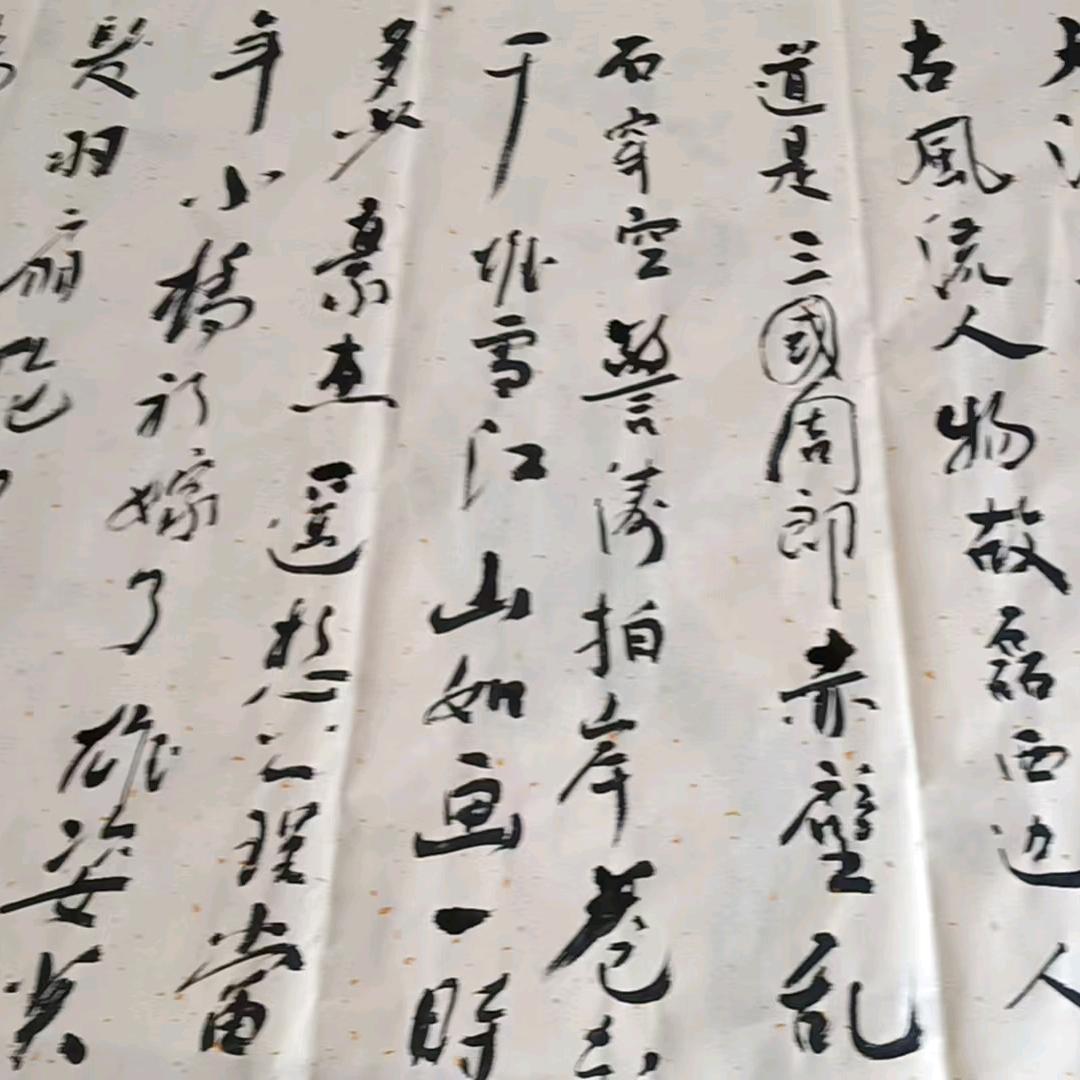 古風流人物故磊西边人
道是三國周郎赤壁乱
石穿空警涛拍岸卷
千堆雪江山如画一時
多少豪杰遥想公瑾當
年小橋初嫁了雄姿英
发羽扇